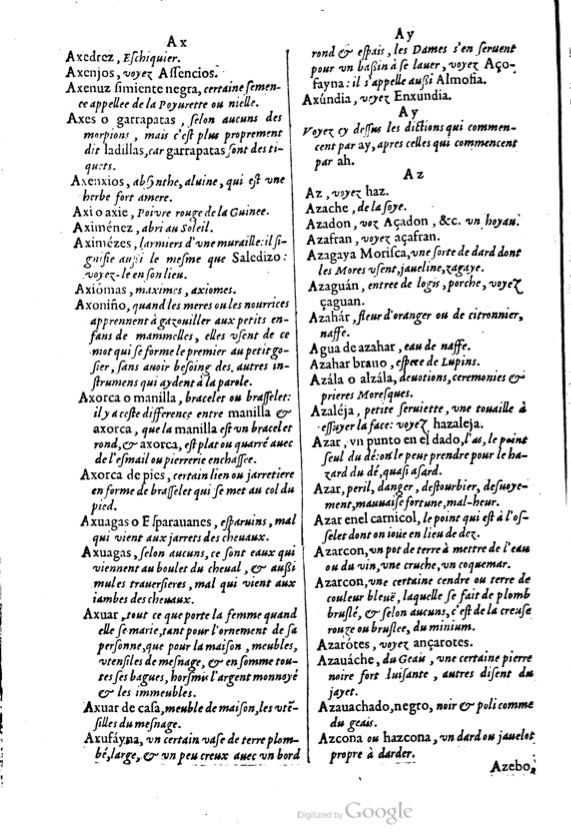 Ax
Axedrez, Eſchiquier.
Axenjos, voyez Aſſencios.
Axenuz ſimiente negra, certaine ſemen-
ce appellee de la Poyurette ou nielle.
Axes o garrapatas, ſelon aucuns des
morpions, mais c'eſt plus proprement
dit ladillas, car garrapatas ſont des ti-
quets.
Axenxios, abſynthe, aluine, qui eſt vne
herbe fort amere.
Axi o axie, Poivre rouge de la Guinee.
Aximénez, abri au Soleil.
Aximézes, larmiers d'vne muraille: il ſi-
gnifie auſſi le meſme que Saledizo:
voyez-le en ſon lieu.
Axiómas, maximes, axiomes.
Axoniño, quand les meres ou les nourrices
apprennent à gazouiller aux petits en-
fans de mammelles, elles vſent de ce
mot qui ſe forme le premier au petit go-
ſier, ſans avoir beſoing des autres in-
ſtrumens qui aydent à la parole.
Axorca o manilla, bracelet ou braſſelet:
il y a ceſte difference entre manilla &
axorca, que la manilla eſt vn bracelet
rond, & axorca, eſt plat ou quarré auec
de l'eſmail ou pierrerie enchaſſee.
Axorca de pies, certain lien ou jarretiere
en forme de braſſelet qui ſe met au col du
pied.
Axuagas o Eſparauanes, eſparuins, mal
qui vient aux jarrets des cheuaux.
Axuagas, ſelon aucuns, ce ſont eaux qui
viennent au boulet du cheual, & auſſi
mules trauerſieres, mal qui vient aux
iambes des cheuaux.
Axuar, tout ce que porte la femme quand
elle ſe marie, tant pour l'ornement de ſa
perſonne, que pour la maiſon, meubles,
vtenſiles de meſnage, & en ſomme tou-
tes ſes bagues, horſmis l'argent monnoyé
& les immeubles.
Axuar de caſa, meuble de maiſon, les vtē-
ſilles du meſnage.
Axufáyna, vn certain vaſe de terre plom-
bé, large, & vn peu creux auec vn bord
Ay
rond & eſpais, les Dames s'en ſeruent
pour vn baſſin à ſe lauer, voyez Aço-
fayna: il s'appelle auſſi Almofia.
Axúndia, voyez Enxundia.
Ay
Voyez cy deſſus les dictions qui commen-
cent par ay, apres celles qui commencent
par ah.
Az
Az, voyez haz.
Azache, de la ſoye.
Azadon, voz Açadon, &c. vn hoyau.
Azafran, voyez açafran.
Azagaya Moriſca, vne ſorte de dard dont
les Mores vſent, jaueline, zagaye.
Azaguán, entree de logis, porche, voyez
çaguan.
Azahár, fleur d'oranger ou de citronnier,
naffe.
Agua de azahar, eau de naffe.
Azahar brauo, eſpece de Lupins.
Azála o alzála, deuotions, ceremonies &
prieres Moreſques.
Azaléja, petite ſeruiette, vne touaille à
eſſuyer la face: voyez hazaleja.
Azar, vn punto en el dado, l'as, le point
ſeul du dé: on le peut prendre pour le ha-
zard du dé, quaſi aſard.
Azar, peril, danger, deſtourbier, deſuoye-
ment, mauuaiſe fortune, mal-heur.
Azar en el carnicol, le point qui eſt à l'oſ-
ſelet dont on ioue en lieu de dez.
Azarcon, vn pot de terre à mettre de l'eau
ou du vin, vne cruche, vn coquemar.
Azarcon, vne certaine cendre ou terre de
couleur bleuë, laquelle ſe fait de plomb
bruſlé, & ſelon aucuns, c'eſt de la creuſe
rouge ou bruſlee, du minium.
Azarótes, voyez ançarotes.
Azauáche, du Geay, vne certaine pierre
noire fort luiſante, autres diſent du
jayet.
Azauachado, negro, noir & poli comme
du geais.
Azcona ou hazcona, vn dard ou jauelot
propre à darder.
Azebo,
Digitized by Google